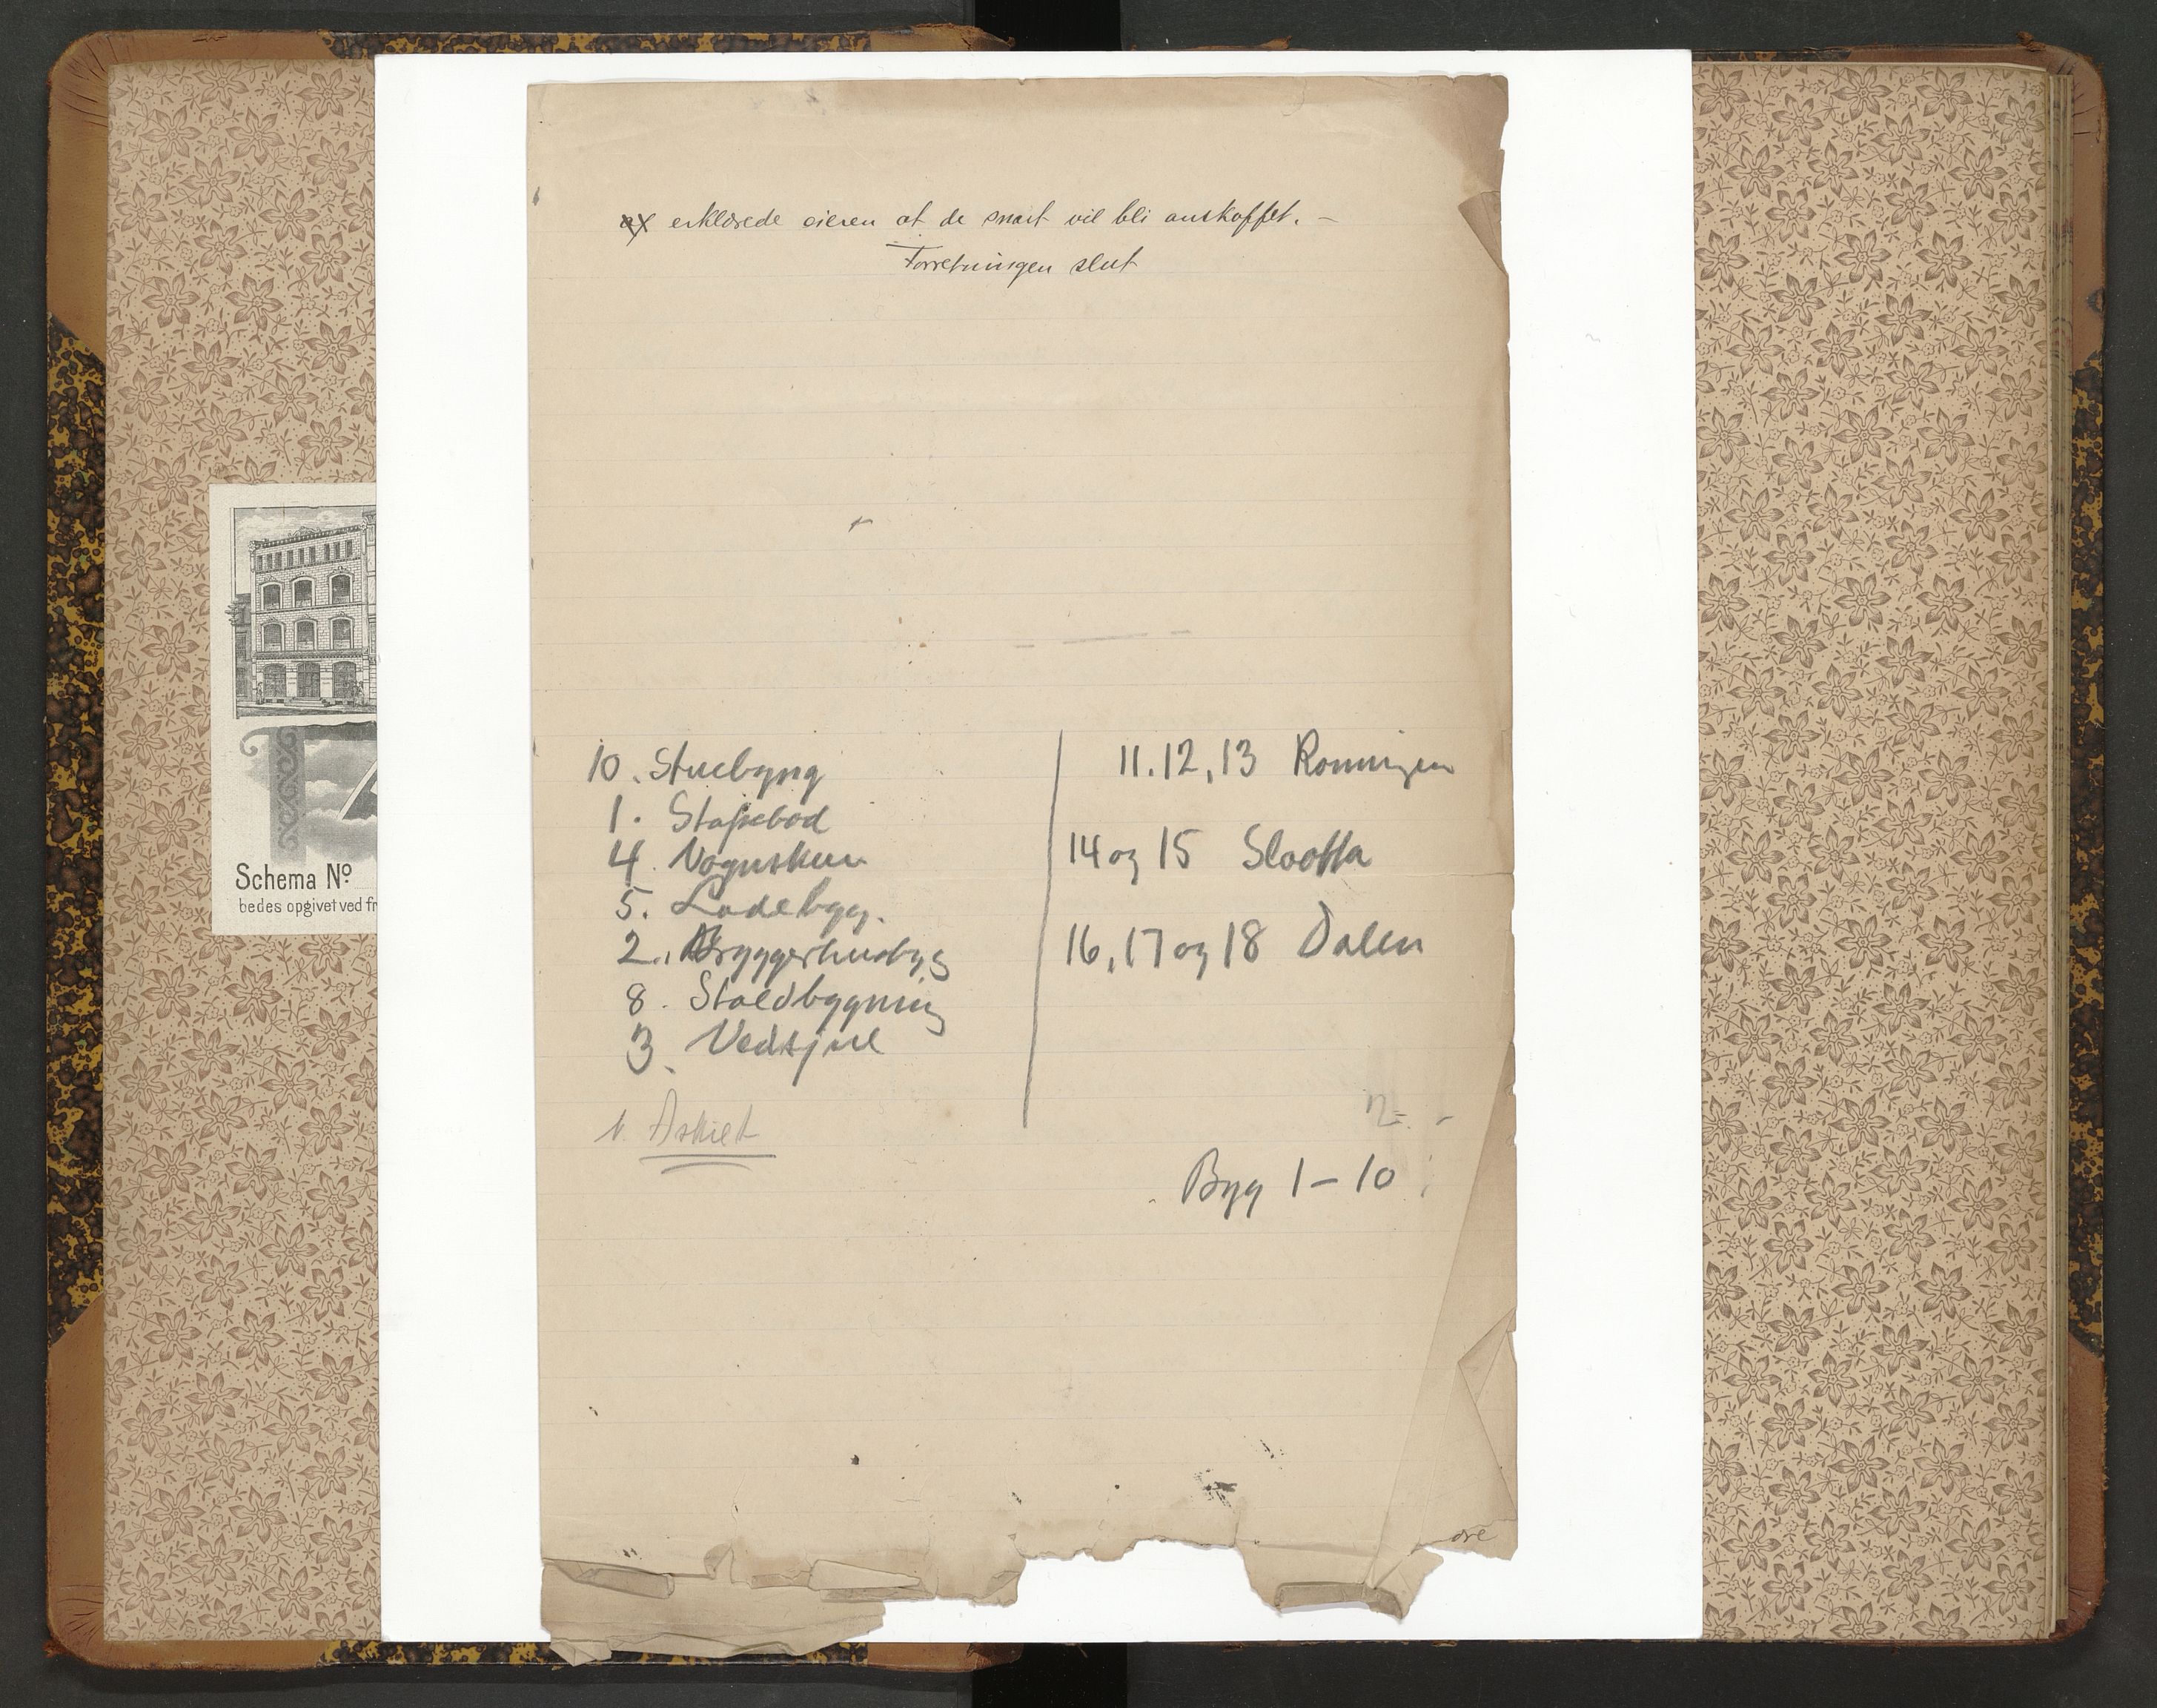 erklærede eieren at de snart vil bli anskaffet. –
Forretningen slut
10. Stuebygng
1. Stabebod
4. Vognskur
5. Ladebyg.
2. Bryggerhusbyg
8. Staldbygning
3. Vedskjul
11.12,13 Ronningen
14 og 15 Slaatta
16, 17 og 18 Dalen
1. Askilt
Byg 1–10
Schema No
bedes opgivet ved fr